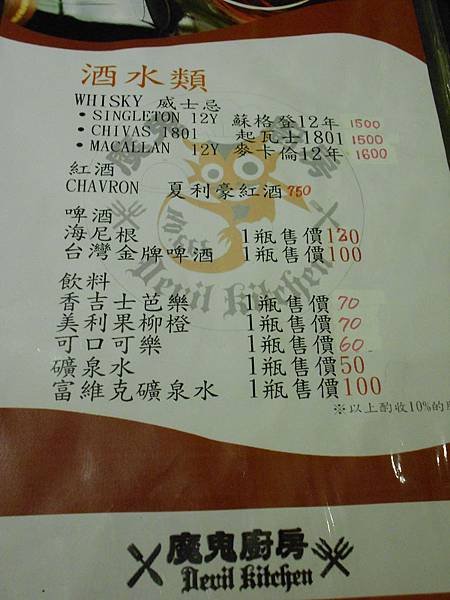 酒水類
WHISKY 威士忌
•SINGLETON 12Y 蘇格登12年 1500
•CHIVAS 1801 起瓦士1801 1500
•MACALLAN 12Y 麥卡倫12年 1600
紅酒
CHAVRON 夏利豪紅酒 750
啤酒
海尼根 1瓶售價120
台灣金牌啤酒 1瓶售價100
飲料
香吉士芭樂 1瓶售價 70
美利果柳橙 1瓶售價 70
可口可樂 1瓶售價 60
礦泉水 1瓶售價50
富維克礦泉水 1瓶售價100
※以上酌收10%的
Devil Kitchen
魔鬼廚房
Devil Kitchen